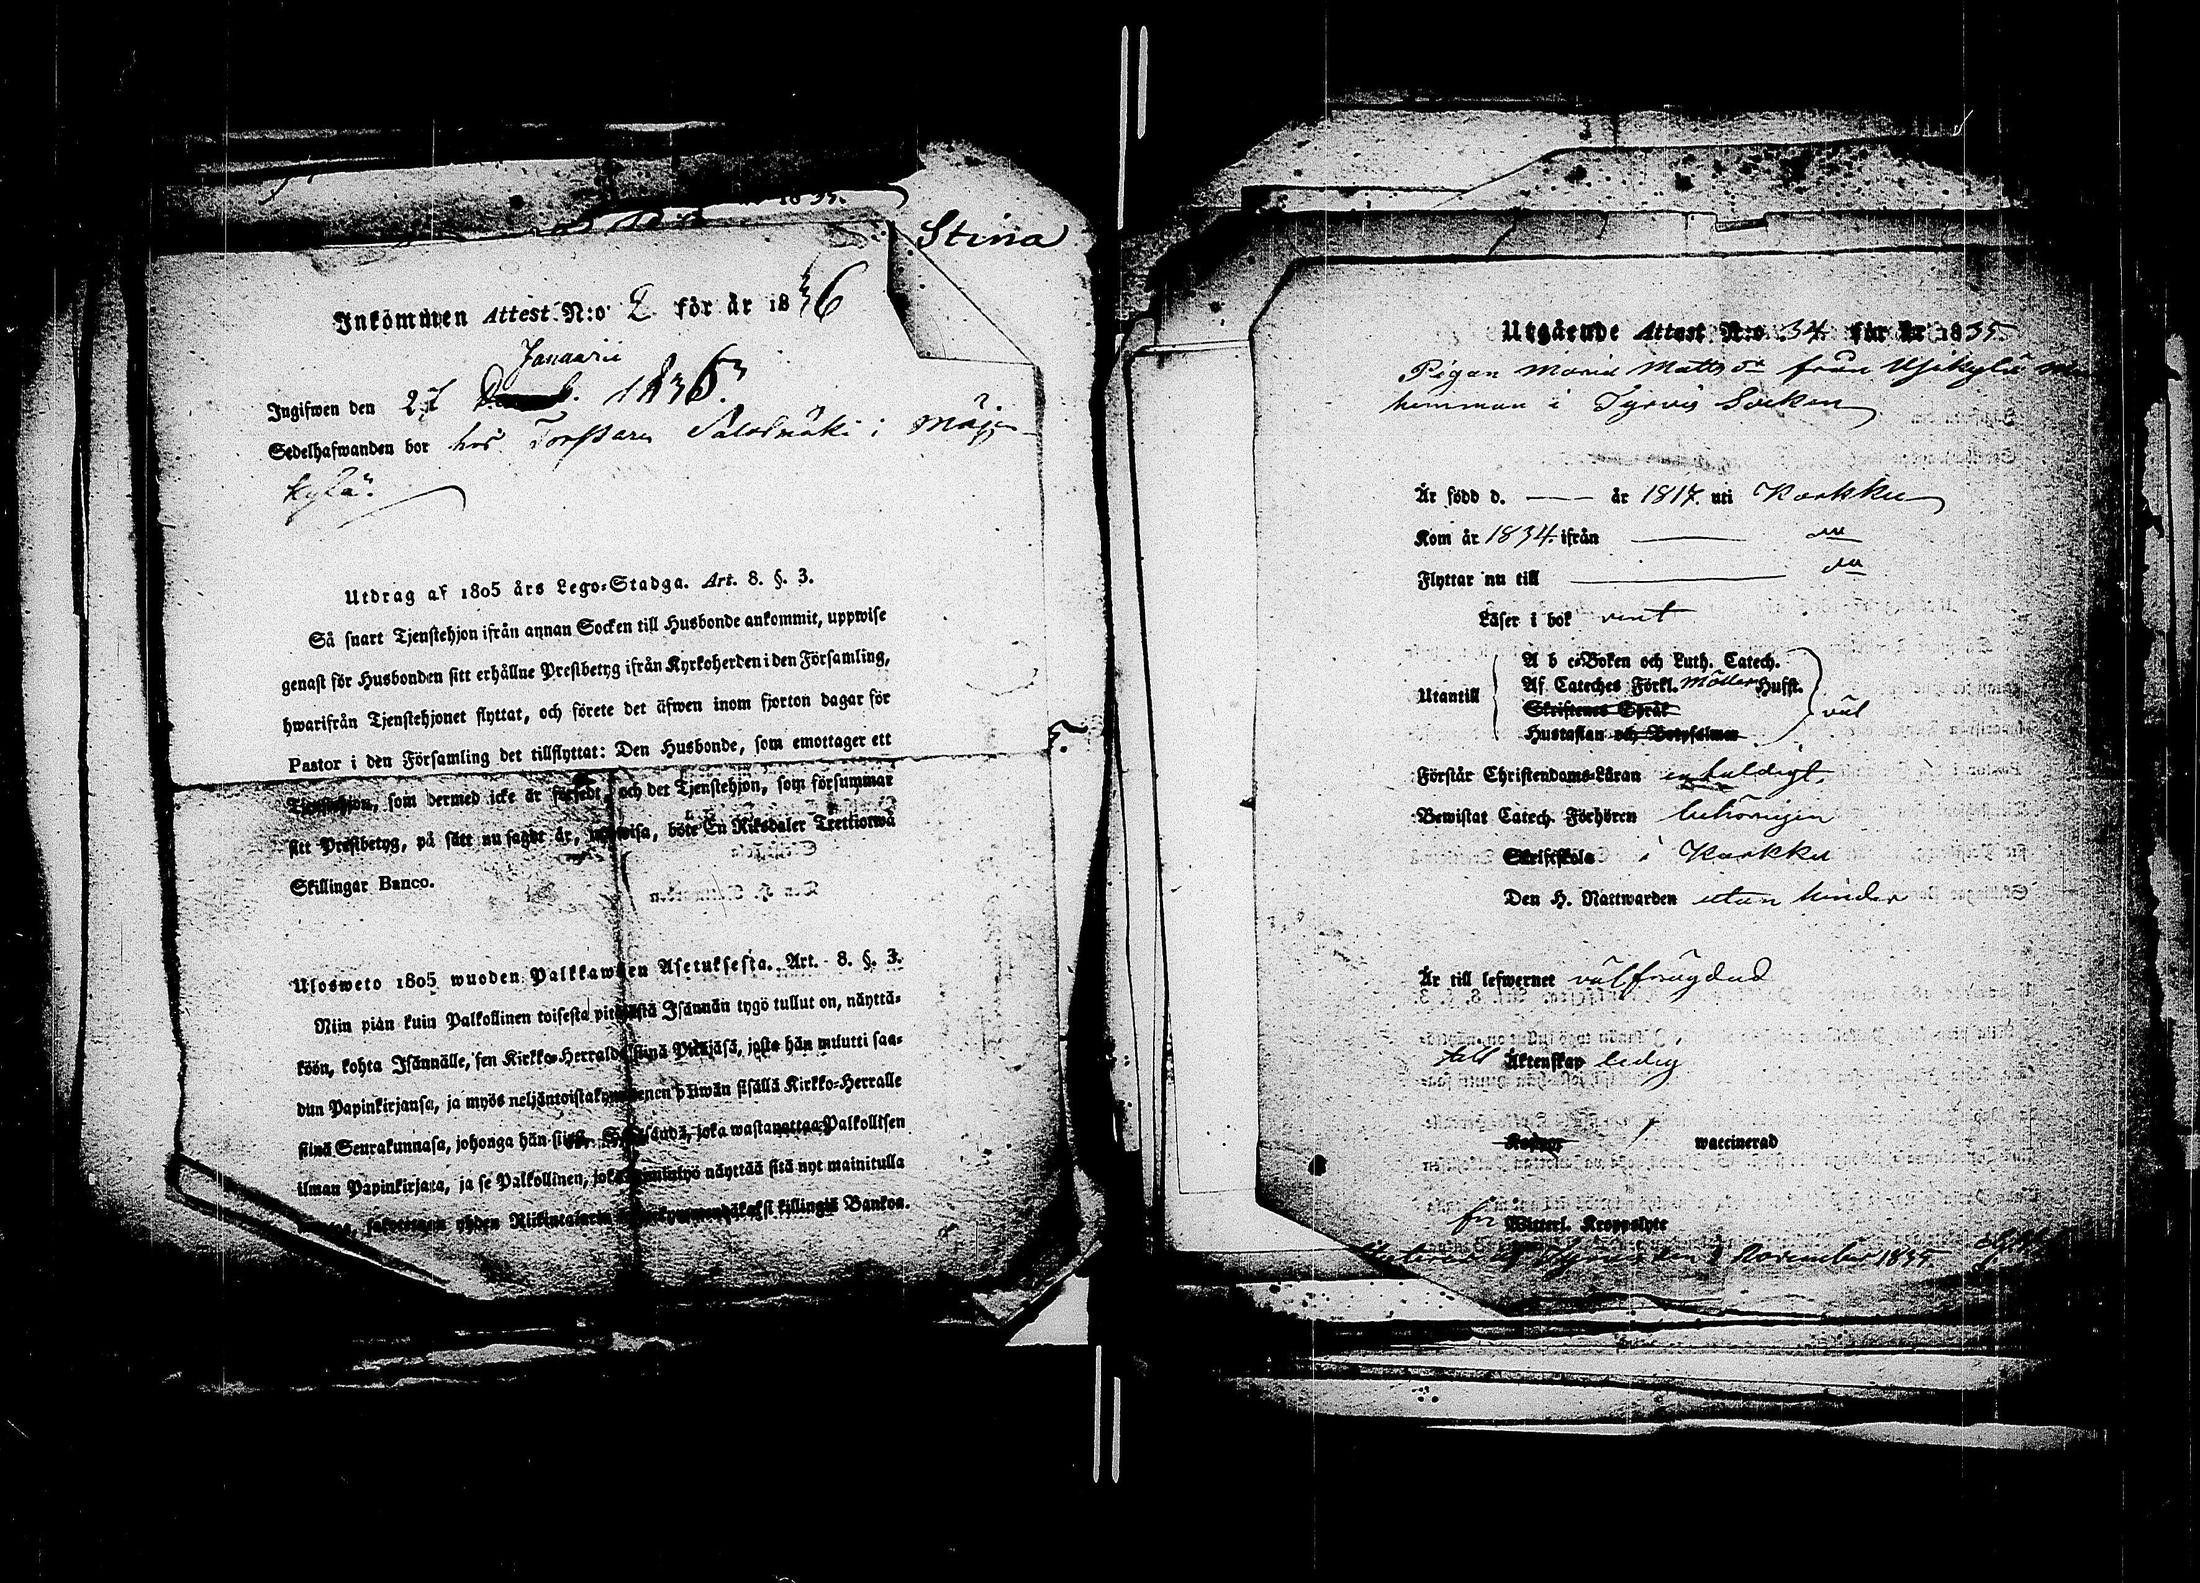 Stina
Inkommen Attest N:o 2 för år 1836
Januarii
Ingifwen den 27 1836.
Sedelhafwanden bor hos Torparen Salosmäki i Maja-
kylä.
Utdrag af 1805 års Lego-Stadga. Art. 8. §. 3.
Så snart Tjenstehjon ifrån annan Socken till Husbonde ankommit, uppwise
genast för Husbonden sitt erhållne Prestbetyg ifrån Kyrkoherden i den Församling,
hwarifrån Tjenstehjonet flyttat, och förete det äfwen inom fjorton dagar för
Pastor i den Församling det tillflyttat: Den Husbonde, som emottager ett
Tjenstehjon, som dermed icke är försedt, och det Tjenstehjon, som försummar
sitt Prestbetyg, på sätt nu sagdt är, uppwisa, böte En Riksdaler Trettiotwå
Skillingar Banco.
Ulosweto 1805 wuoden Palkkawäen Asetuksesta. Art. 8. §. 3.
Niin piän kuin Palkollinen toisesta pitäjästä Isännän tygö tullut on, näyttä-
köön, kohta Isännälle, sen Kirkko-Herralda siinä Pitäjäsä, josta hän muutti saa-
dun Papinkirjansa, ja myös neljäntoistakymmenen päiwän sisällä Kirkko-Herralle
siinä Seurakunnasa, johonga hän siirsi. Se Isändä, joka wastanottaa Palkollisen
ilman Papinkirjata, ja se Palkollinen, joka laiminlyö näyttää sitä nyt mainitulla
sakotetaan yhden Riikintalerin killingiä Bankoa.
Utgående Attest N:o 34 för år 1835
Pigan Maria Mattsdr från Usikylä
hemman i Tyrvis Socken
Är född d. —— år 1817. uti Karkku
Kom år 1834. ifrån —— du
Flyttar nu till —— du
Läser i bok rent
A b c-Boken och Luth. Catech.
Utantill Af Cateches Förkl. Möllers Hufst. väl
Skriftenes Språk
Hustaflan och Botpsalmer
Förstår Christendoms-Läran enfaldigt,
Bewistat Catech. Förhören behörigen
Skriftskola i Karkku
Den H. Nattwarden utan hinder
Är till lefwernet välfrägdad
till Äktenskap ledig
Koppor waccinerad
fri Witterl. Kroppslyte
Tyrvis den November 1835.